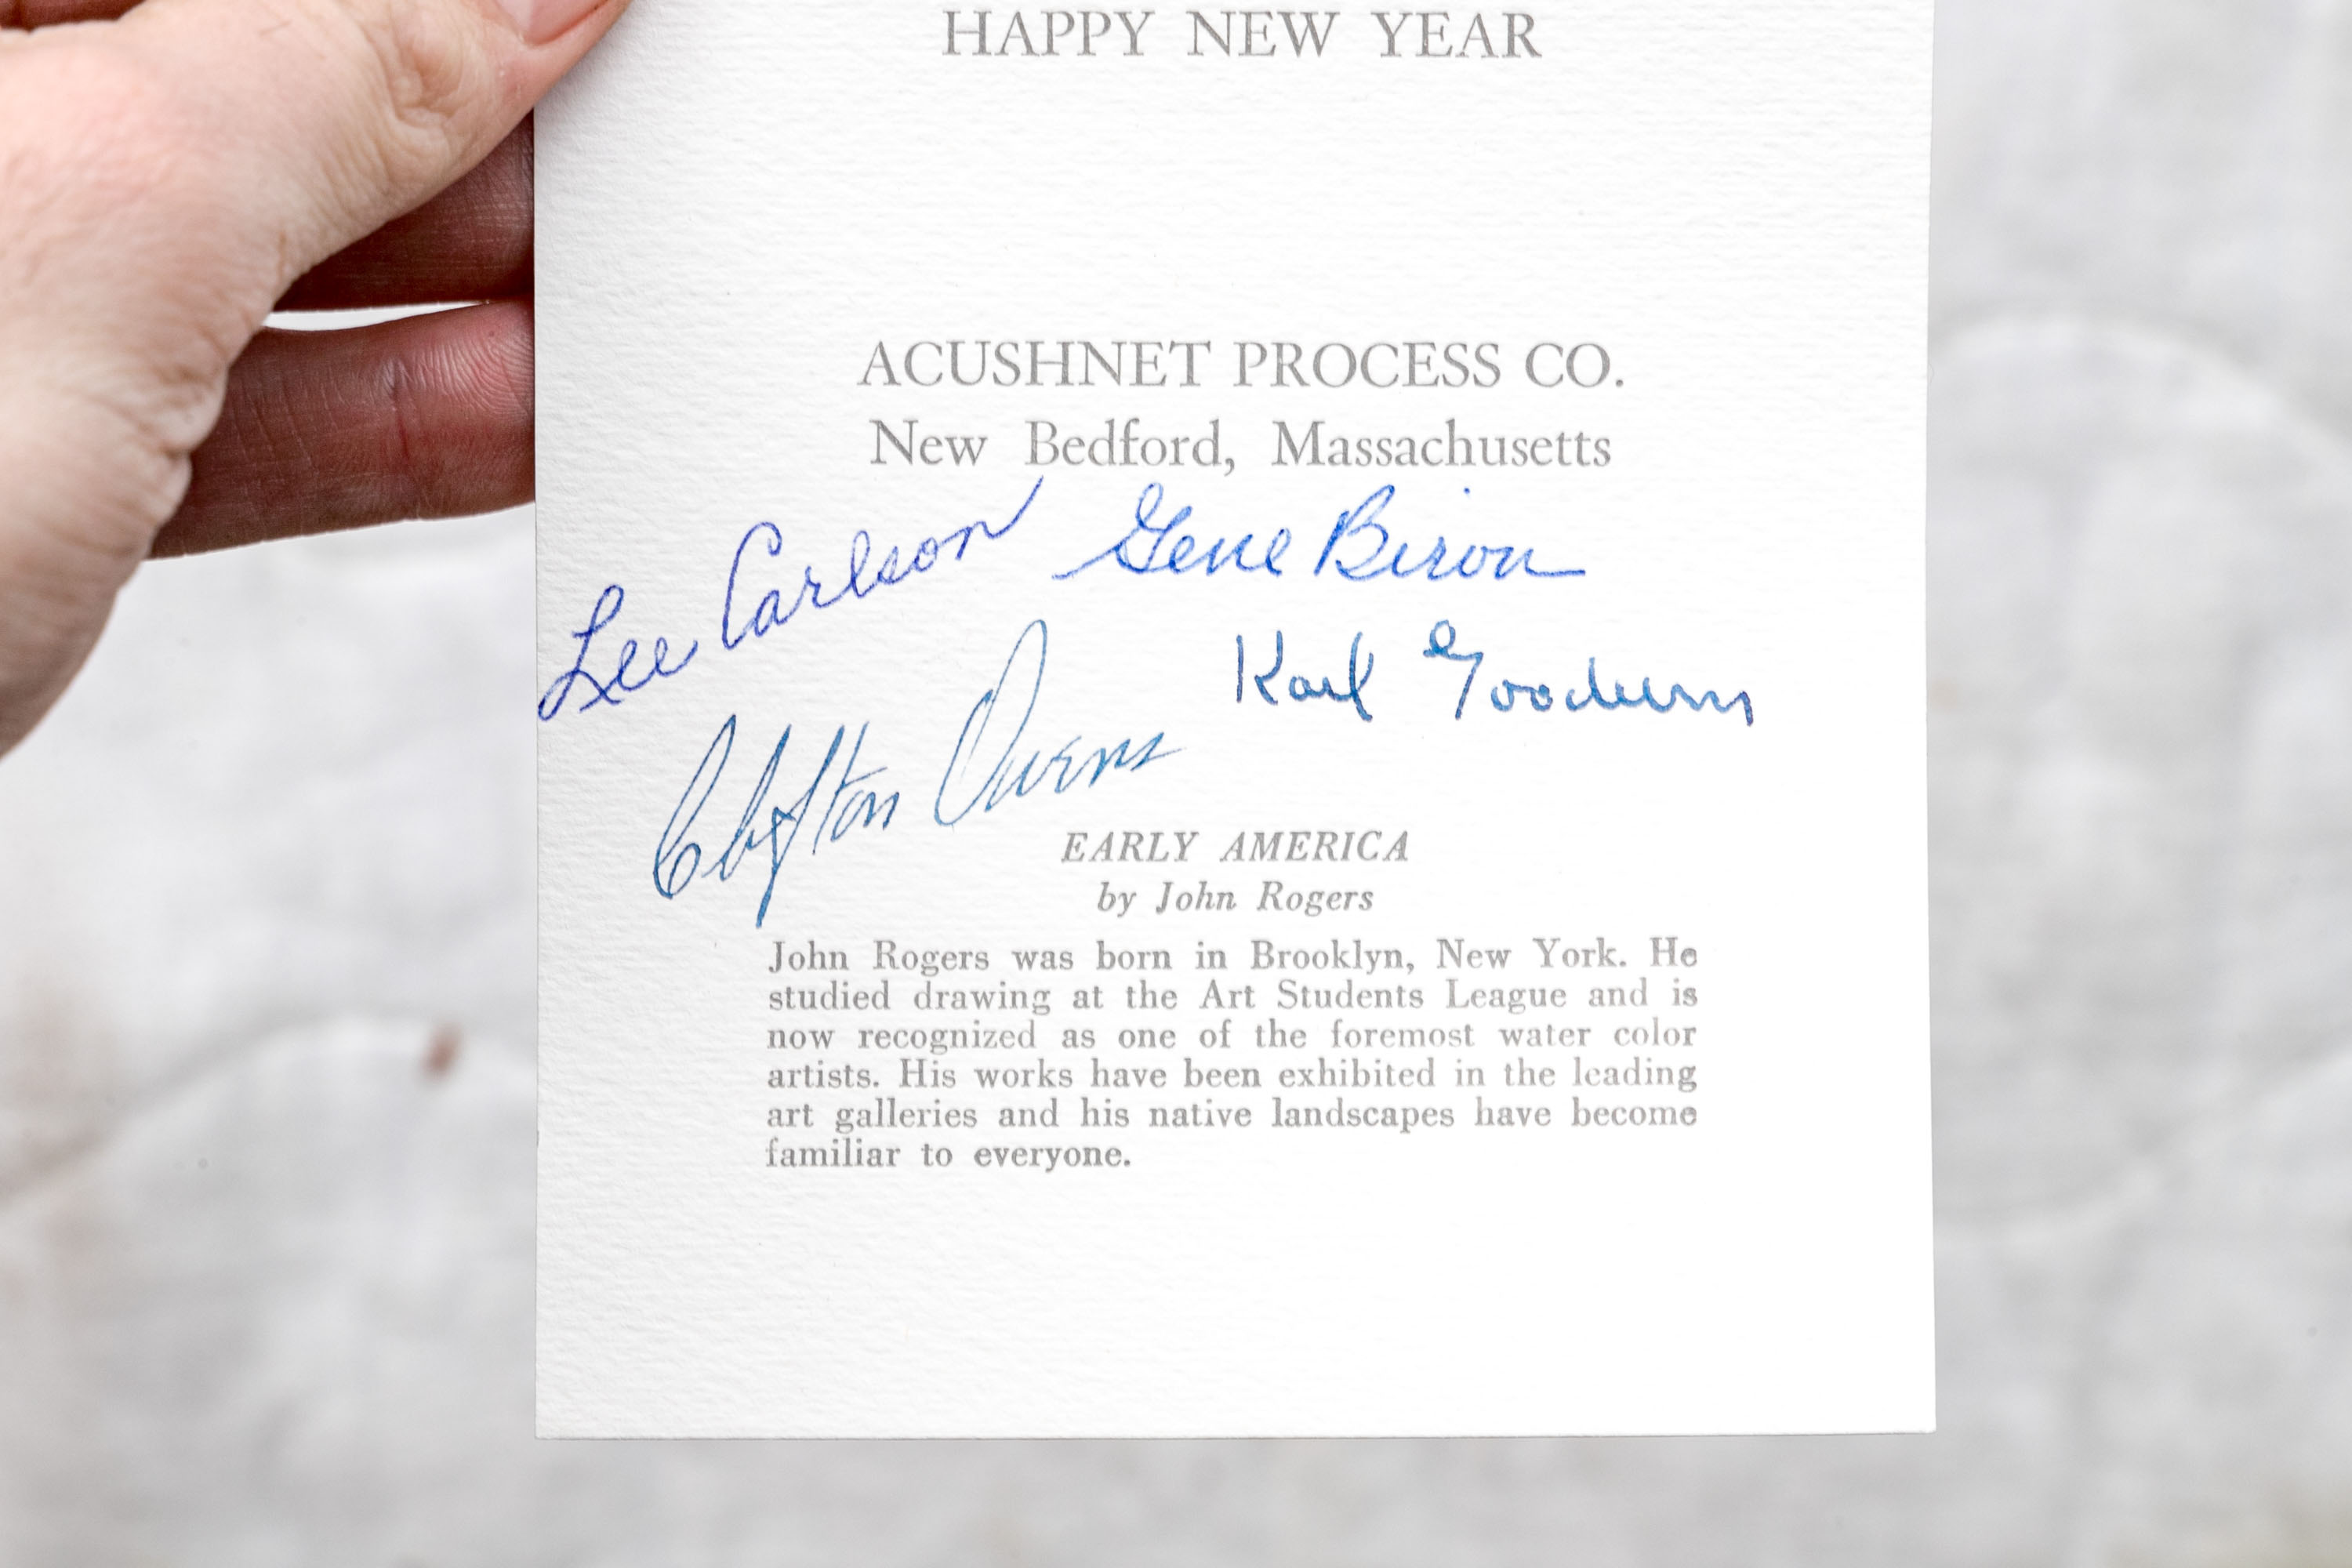 HAPPY NEW YEAR
ACUSHNET PROCESS CO.
New Bedford, Massachusetts
Lee Carlson Gene Biron
Karl Goodwin
Clifton Owens
EARLY AMERICA
by John Rogers
John Rogers was born in Brooklyn, New York. He
studied drawing at the Art Students League and is
now recognized as one of the foremost water color
artists. His works have been exhibited in the leading
art galleries and his native landscapes have become
familiar to everyone.